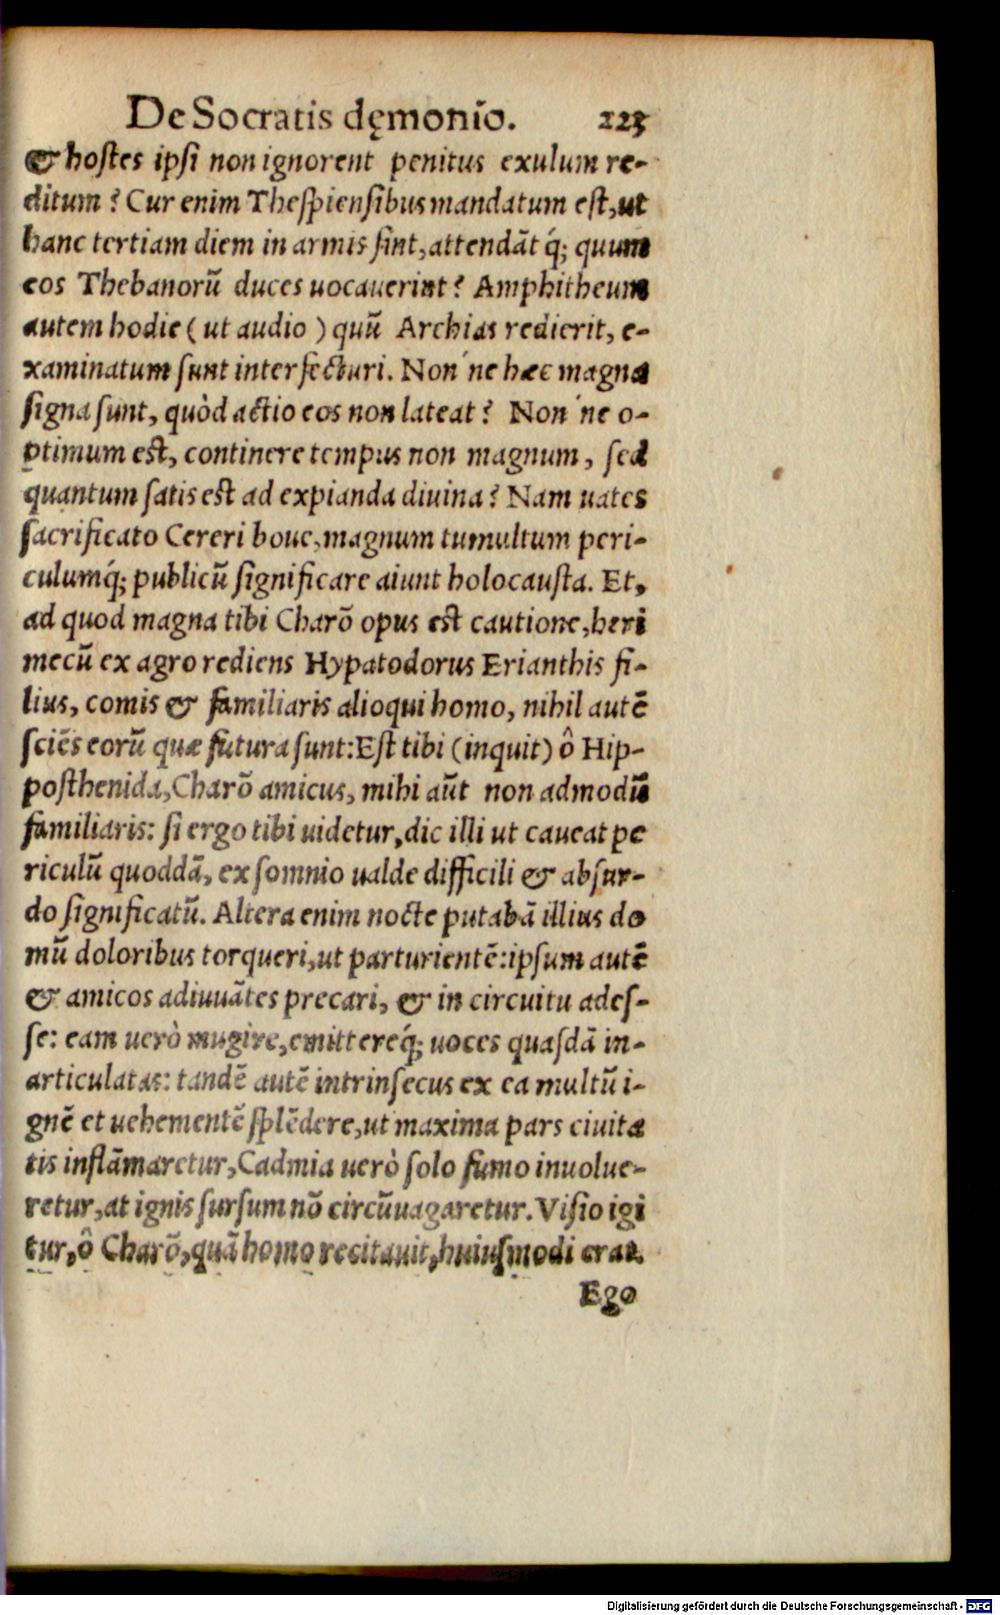 De Socratis dęmonio. 223
& hostes ipsi non ignorent penitus exulum re-
ditum? Cur enim Thespiensibus mandatum est, ut
hanc tertiam diem in armis sint, attendāt q́; quum
eos Thebanorū duces uocauerint? Amphitheum
autem hodie (ut audio) quū Archias redierit, e-
xaminatum sunt interfecturi. Non'ne hæc magna
signa sunt, quòd actio eos non lateat? Non'ne o-
ptimum est, continere tempus non magnum, sed
quantum satis est ad expianda diuina? Nam uates
sacrificato Cereri boue, magnum tumultum peri-
culumq́; publicū significare aiunt holocausta. Et,
ad quod magna tibi Charō opus est cautione, heri
mecū ex agro rediens Hypatodorus Erianthis fi-
lius, comis & familiaris alioqui homo, nihil autē
sciēs eorū quæ futura sunt: Est tibi (inquit) ô Hip-
posthenida, Charō amicus, mihi aūt non admodū
familiaris: si ergo tibi uidetur, dic illi ut caueat pe
riculū quoddā, ex somnio ualde difficili & absur-
do significatū. Altera enim nocte putabā illius do
mū doloribus torqueri, ut parturientē: ipsum autē
& amicos adiuuātes precari, & in circuitu ades-
se: eam uerò mugire, emittereq́; uoces quasdā in-
articulatas: tandē autē intrinsecus ex ea multū i-
gnē et uehementē splēdere, ut maxima pars ciuita
tis inflāmaretur, Cadmia uerò solo fumo inuolue-
retur, at ignis sursum nō circūuagaretur. Visio igi
tur, ô Charō, quā homo recitauit, huiusmodi erat.
Ego
Digitalisierung gefördert durch die Deutsche Forschungsgemeinschaft - DFG